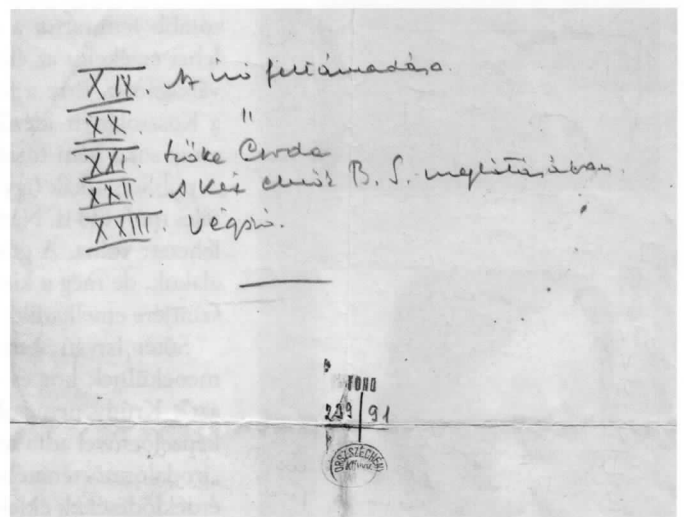 XIX. A nő feltámadása
XX "
XXI Szőke Csoda
XXII A két elnök B. S. meglátásában.
XXIII. Végszó.
FOND
239 | 91
ORSZ.SZÉCHÉNYI